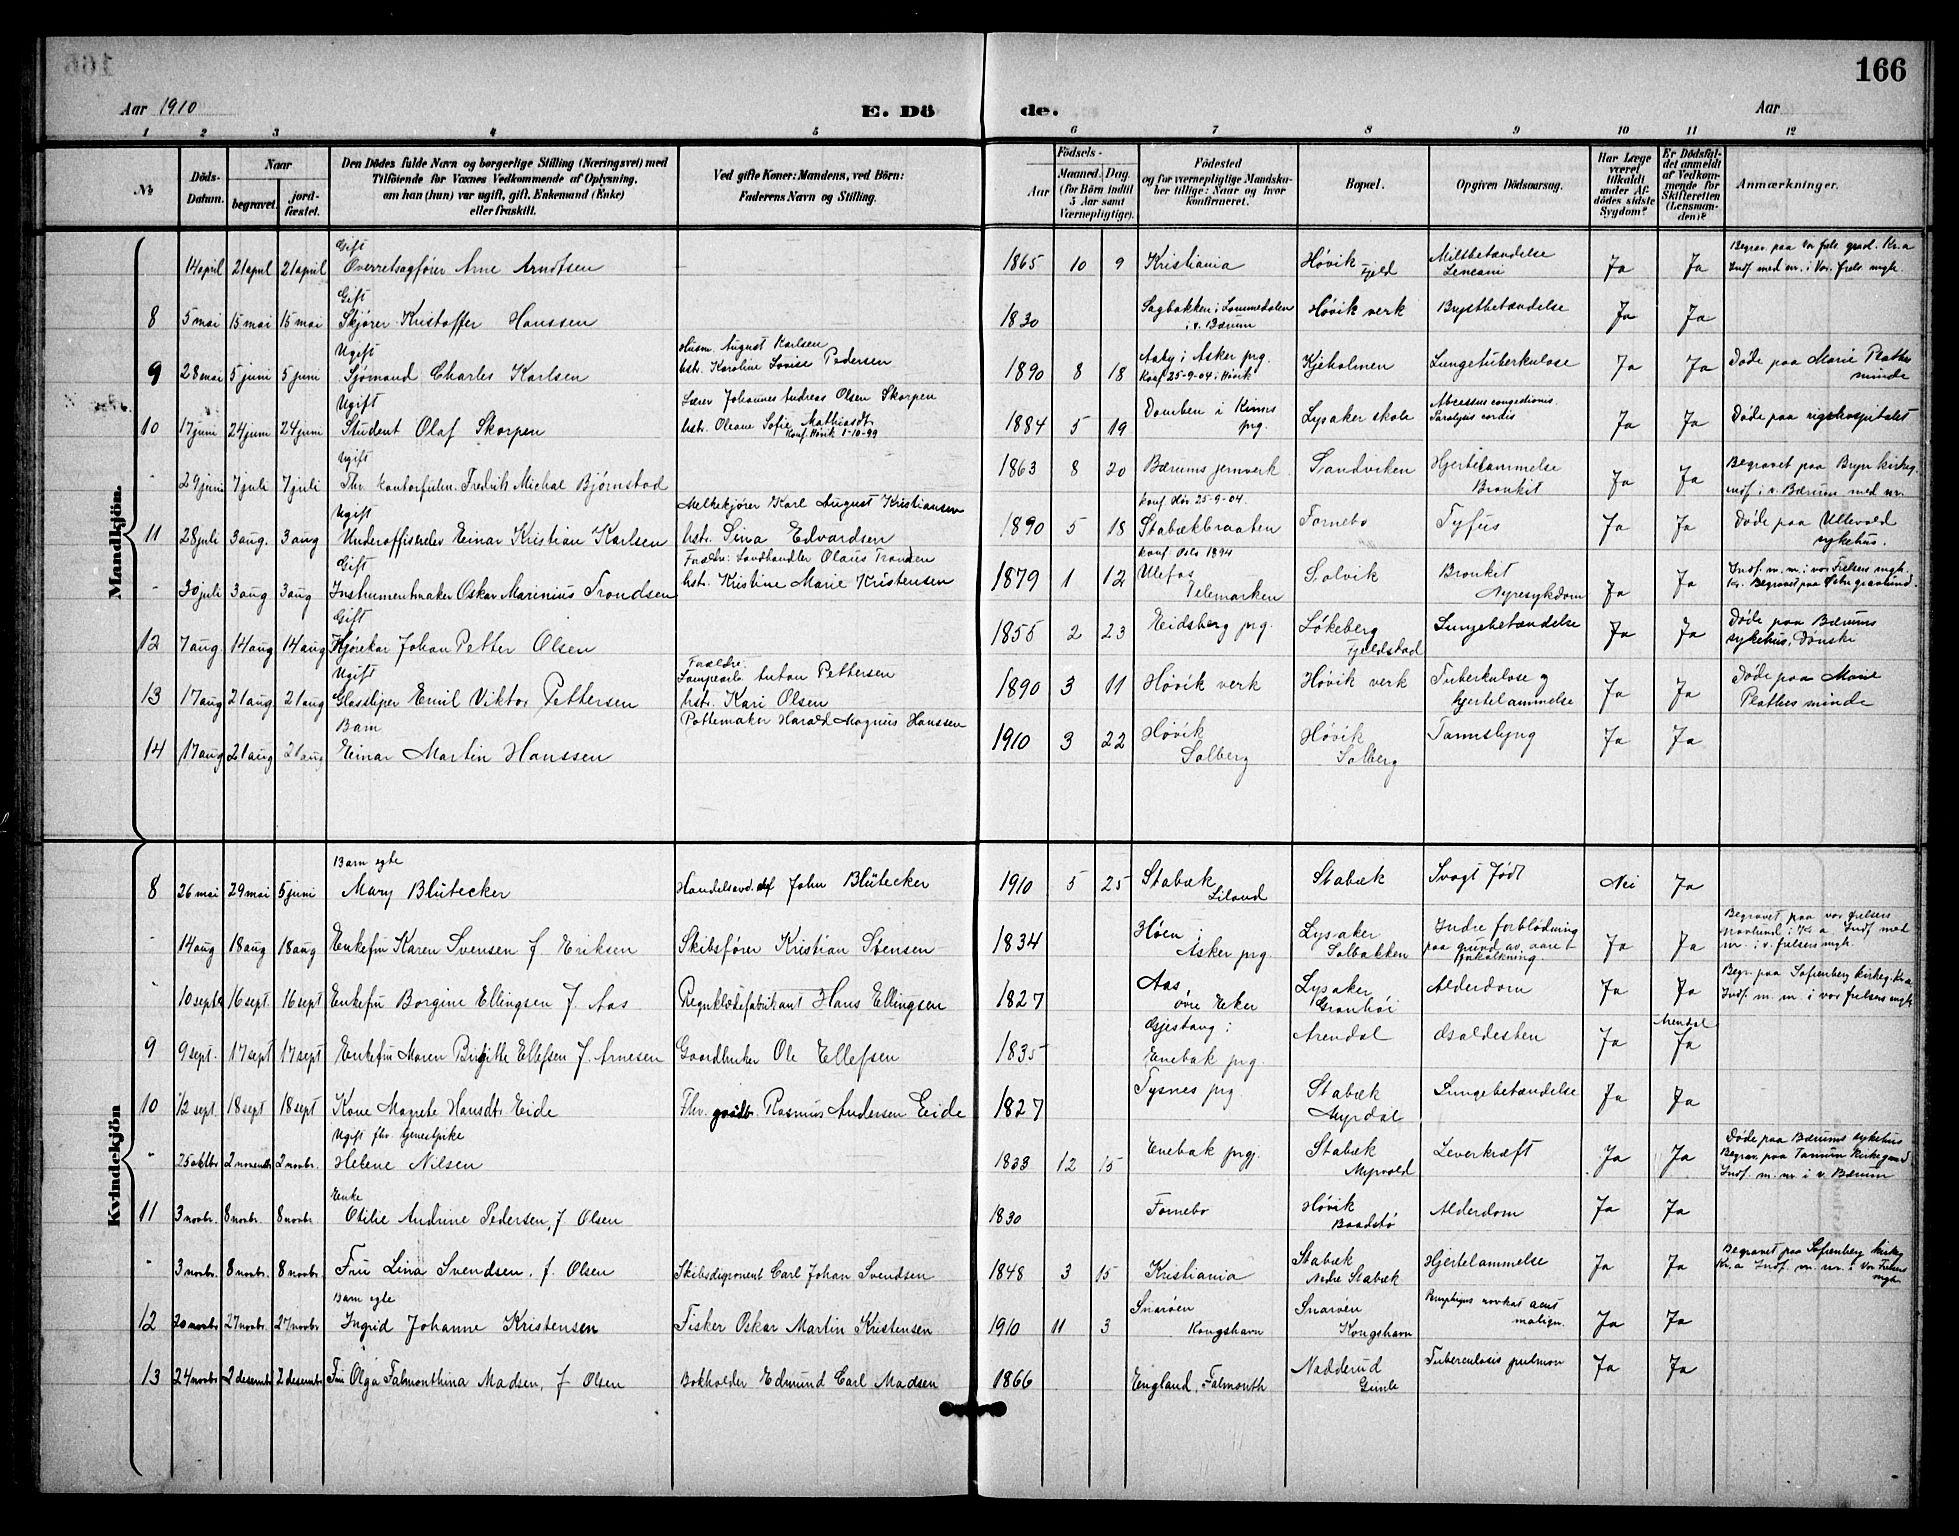 166
Aar 1910
E. Dö
de.
Aar
1 2 3 4 5 6 7 8 9 10 11 12
No
Döds-Datum.
Naar
begravet.
jord-fæstet.
Den Dödes fulde Navn og borgerlige Stilling (Næringsvei) med
Tilföiende for Voxnes Vedkommende af Oplysning,
om han (hun) var ugift, gift, Enkemand (Enke)
eller fraskilt.
Ved gifte Koner: Mandens, ved Börn:
Faderens Navn og Stilling.
Födsels-
Aar
Maaned. Dag.
(for Börn indtil
5 Aar samt
Værnepligtige).
Födested
og for værnepligtige Mandska-
ber tillige: Naar og hvor
konfirmeret.
Bopæl.
Opgiven Dödsaarsag.
Har Læge
været
tilkaldt
under Af-
dödes sidste
Sygdom?
Er Dödsfal-
det anmeldt
af Vedkom-
mende for
Skifteretten
(Lensman-
den)?
Anmærkninger.
Mandkjön.
Gift
14 april 21 april 21 april Overretsagfører Arne Arndtsen 1865 10 9 Kristiania Høvik Fjeld Miltsbetændelse Ja Ja Begrav. paa vor frels. gravl. Kr.a
Indf. med nr. i Vor frels. mgh.
Gift
8 5 mai 15 mai 15 mai Skjører Kristoffer Hanssen 1830 Sagbakken i Lommedalen i v. Bærum Høvik verk Brystbetændelse Ja Ja
Ugift
9 28 mai 5 juni 5 juni Sjømand Charles Karlsen Husm. August Karlsen
hstr. Karoline Lovise Pedersen 1890 8 18 Aaby i Asker prg.
Konf 25-9-04 i Høvik Kjeholmen Lungetuberkulose Ja Ja Døde paa Marie Plathes minde
Ugift
10 17 juni 24 juni 24 juni Student Olaf Skorpen Lærer Johannes Andreas Olsen Skorpen
hstr. Oleane Sofie Mathiasdt.
Konf. Høvik 1-10-99 1884 5 19 Domben i Kinns prg. Lysaker skole Abcessus congestionis.
Paralysis cordis Ja Ja Døde paa rigshospitalet
Ugift
" 29 juni 7 juli 7 juli Fhv. kontorfulm. Fredrik Michal Bjørnstad 1863 8 20 Bærums jernverk Sandviken Hjertelammelse
Bronkit Ja Ja Begravet paa Bryn kirkeg.
indf. i v. Bærum med nr.
Ugift
11 28 juli 3 aug. 3 aug Underoffiselev Einar Kristian Karlsen Melkekjører Karl August Kristiansen
hstr. Lina Edvardsen 1890 5 18 konf. Høv. 25-9-04.
Stabækbraaten Fornebo Tyfus Ja Ja Døde paa Ullevold sykehus.
Gift
" 30 juli 3 aug 3 aug Instrumentmaker Oskar Marinius Trondsen Forældre: Landhandler Olaus Tronden
hstr. Kristine Marie Kristensen 1879 1 12 konf. Oslo 1894
Ulefos Telemarken Solvik Bronkit
Nyresykdom Ja Ja Indf. m. nr. i vor Frelsers mgh.
Kr. Begravet paa Østre gravlund.
Gift
12 7 aug 14 aug 14 aug Kjørekar Johan Petter Olsen 1855 2 23 Eidsberg prg. Løkeberg Fjeldstad Lungebetændelse Ja Ja Døde paa Bærums
sykehus, Dønski
Ugift
13 17 aug 21 aug 21 aug Glassliper Emil Viktor Pettersen Forældre:
Lampearb. Anton Pettersen
hstr. Kari Olsen 1890 3 11 Høvik verk Høvik verk Tuberkulose og
hjertelammelse Ja Ja Døde paa Marie
Plathes minde
Barn
14 17 aug 21 aug 21 aug Einar Martin Hanssen Pottemaker Harald Magnus Hanssen 1910 3 22 Høvik Solberg Høvik Solberg Tannsbyrg Ja Ja
Kvindekjön
Barn egte
8 26 mai 29 mai 5 juni Mary Blütecker Handelsavd. chef John Blütecker 1910 5 25 Stabæk Liland Stabæk Svagt født Nei Ja
" 14 aug 18 aug 18 aug Enkefru Karen Svensen f. Eriksen Skibsfører Kristian Stensen 1834 Høen i Asker prg. Lysaker Solbakken Indre forblødning
paa grund av aare-
forkalkning. Ja Ja Begravet paa vor frelsers
Gravlund i Kr.a Indf. med
nr. i v. frelsers mgh.
" 10 septb. 16 sept. 16 sept Enkefru Borgine Ellingsen f. Aas Regnklædefabrikant Hans Ellingsen 1827 Aas, øvre Eker Lysaker Granhøi Alderdom Ja Ja Begr. paa Sofienberg kirkeg. Kr.a
Indf. m. nr. i vor frelsers mgh.
9 9 sept. 17 sept 17 sept Enkefru Maren Birgitte Ellefsen f. Arnesen Gaardbruker Ole Ellefsen 1835 Gjestang i Enebak prg. Arendal Galdesten Ja Arendal Ja
10 12 sept. 18 sept 18 sept Kone Magrete Hansdt. Eide Fhv. gaardbr. Rasmus Andersen Eide 1827 Tysnes prg Stabæk Myrdal Lungebetændelse Ja Ja
Ugift fhv. tjenestpike
" 25 oktbr 2 novembr 2 novbr. Helene Nilsen 1833 12 15 Enebak prgj. Stabæk Myrvold Leverkræft Ja Ja Døde paa Bærums sykehus
Begrav. paa Tanum kirkegaard
Indf. m. nr i v. Bærum
Enke
11 3 novbr. 8 novbr. 8 novbr. Otilie Andrine Pedersen, f Olsen 1830 Fornebo Høvik Baadstø Alderdom Ja Ja
" 3 novbr. 8 novbr. 8 novbr Fru Lina Svendsen. f. Olsen Skibsdisponent Carl Johan Svendsen 1848 3 15 Kristiania Stabæk Nedre Stabæk Hjertelammelse Ja Ja Begravet paa Sofienberg kirkeg
Kr.a Indf. m. nr. i Vor Frelsers
mgh.
Barn egte
12 20 novbr 27 novbr 27 novbr Ingrid Johanne Kristensen Fisker Oskar Martin Kristensen 1910 11 3 Snarøen Kongshavn Snarøen Kongshavn malign. Ja Ja
13 24 novbr 2 desembr 2 desembr Fru Olga Falmonthina Madsen, f Olsen Bokholder Edmund Carl Madsen 1866 England, Falmouth Nadderud Tuberculosis pulmon Ja Ja